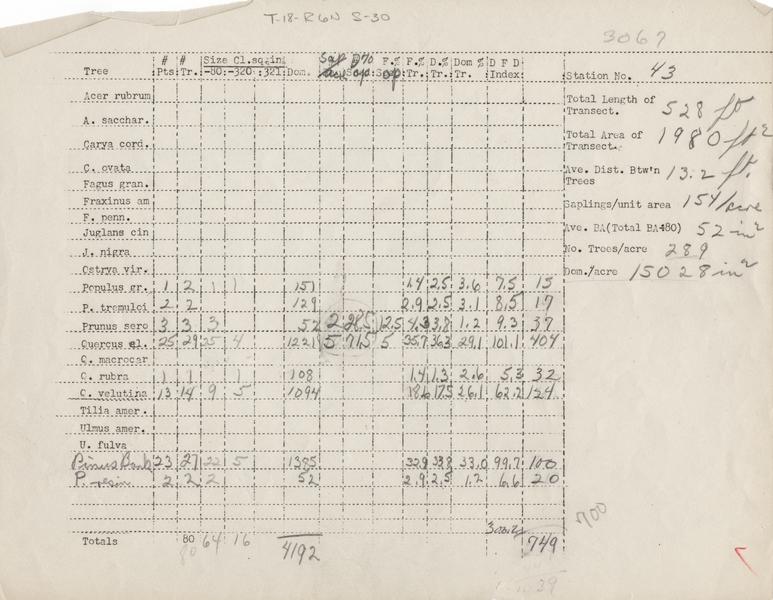 T-18-R6N S-30
3067
# # Size Cl.sq.in. Sap D% F.% F.% D.% Dom % D F D
Tree Pts. Tr. -80 -320 :321 Dom. Sap. Sap Tr. Tr. Tr. Index
Station No. 43
Acer rubrum
Total Length of Transect. 528 ft
A. sacchar.
Total Area of Transect. 1980 ft²
Carya cord.
C. ovata
Ave. Dist. Btw'n Trees 13.2 ft.
Fagus gran.
Fraxinus am
Saplings/unit area 154/acre
F. penn.
Juglans cin
Ave. BA(Total BA÷80) 52 in²
J. nigra
No. Trees/acre 289
Ostrya vir.
Dom./acre 15028 in²
Populus gr. 1 2 1 1 151 1.4 2.5 3.6 7.5 15
P. tremuloi 2 2 129 2.9 2.5 3.1 8.5 17
Prunus sero 3 3 3 52 2 28.5 12.5 4.3 3.8 1.2 9.3 37
Quercus el. 25 29 25 4 1221 5 71.5 5 35.7 36.3 29.1 101.1 404
Q. macrocar
Q. rubra 1 1 1 108 1.4 1.3 2.6 5.3 32
Q. velutina 13 14 9 5 1094 18.6 17.5 26.1 62.2 124
Tilia amer.
Ulmus amer.
U. fulva
Pinus Bank 23 27 22 5 1385 32.9 33.8 33.0 99.7 100
P. resin 2 2 2 52 2.9 2.5 1.2 6.6 20
700
Totals 80 64 16 4192 749
80